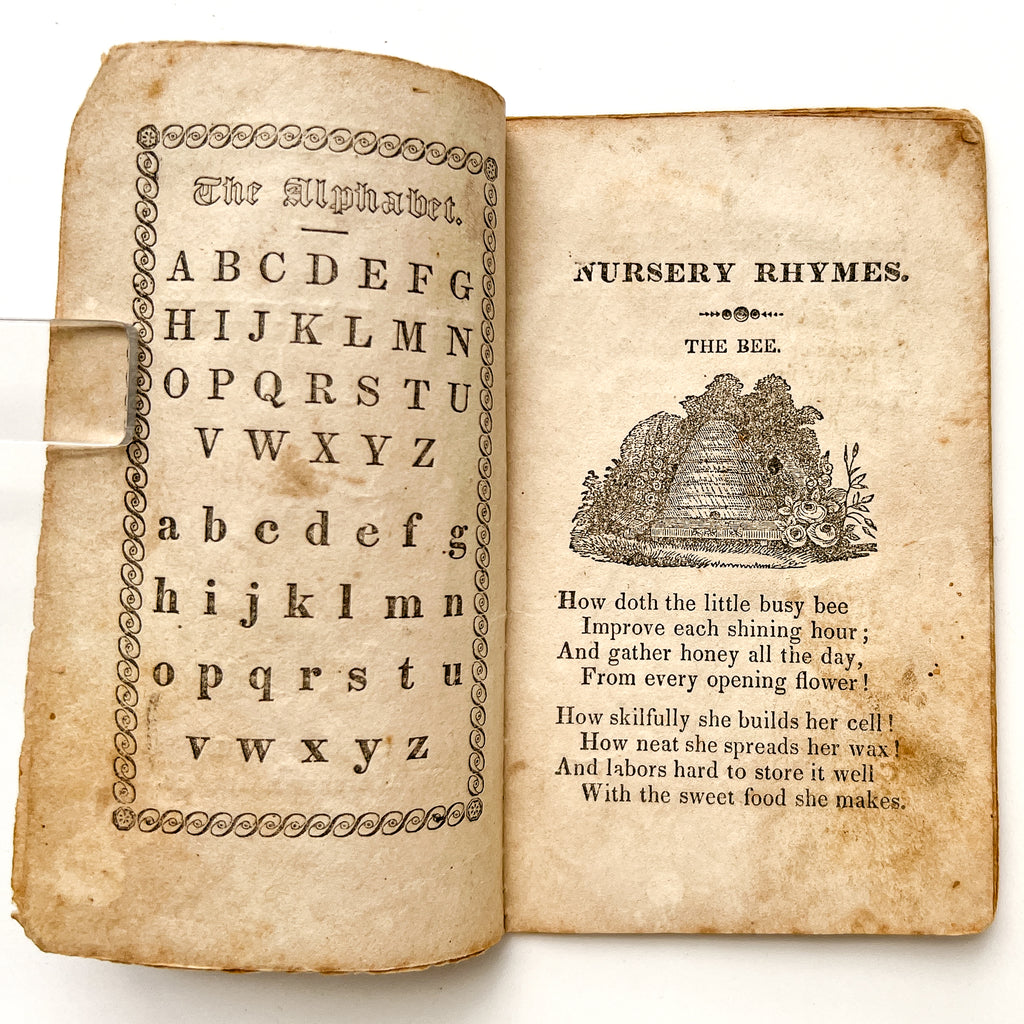 The Alphabet.
A B C D E F G
H I J K L M N
O P Q R S T U
V W X Y Z
a b c d e f g
h i j k l m n
o p q r s t u
v w x y z
NURSERY RHYMES.
THE BEE.
How doth the little busy bee
Improve each shining hour;
And gather honey all the day,
From every opening flower!
How skilfully she builds her cell!
How neat she spreads her wax!
And labors hard to store it well
With the sweet food she makes.